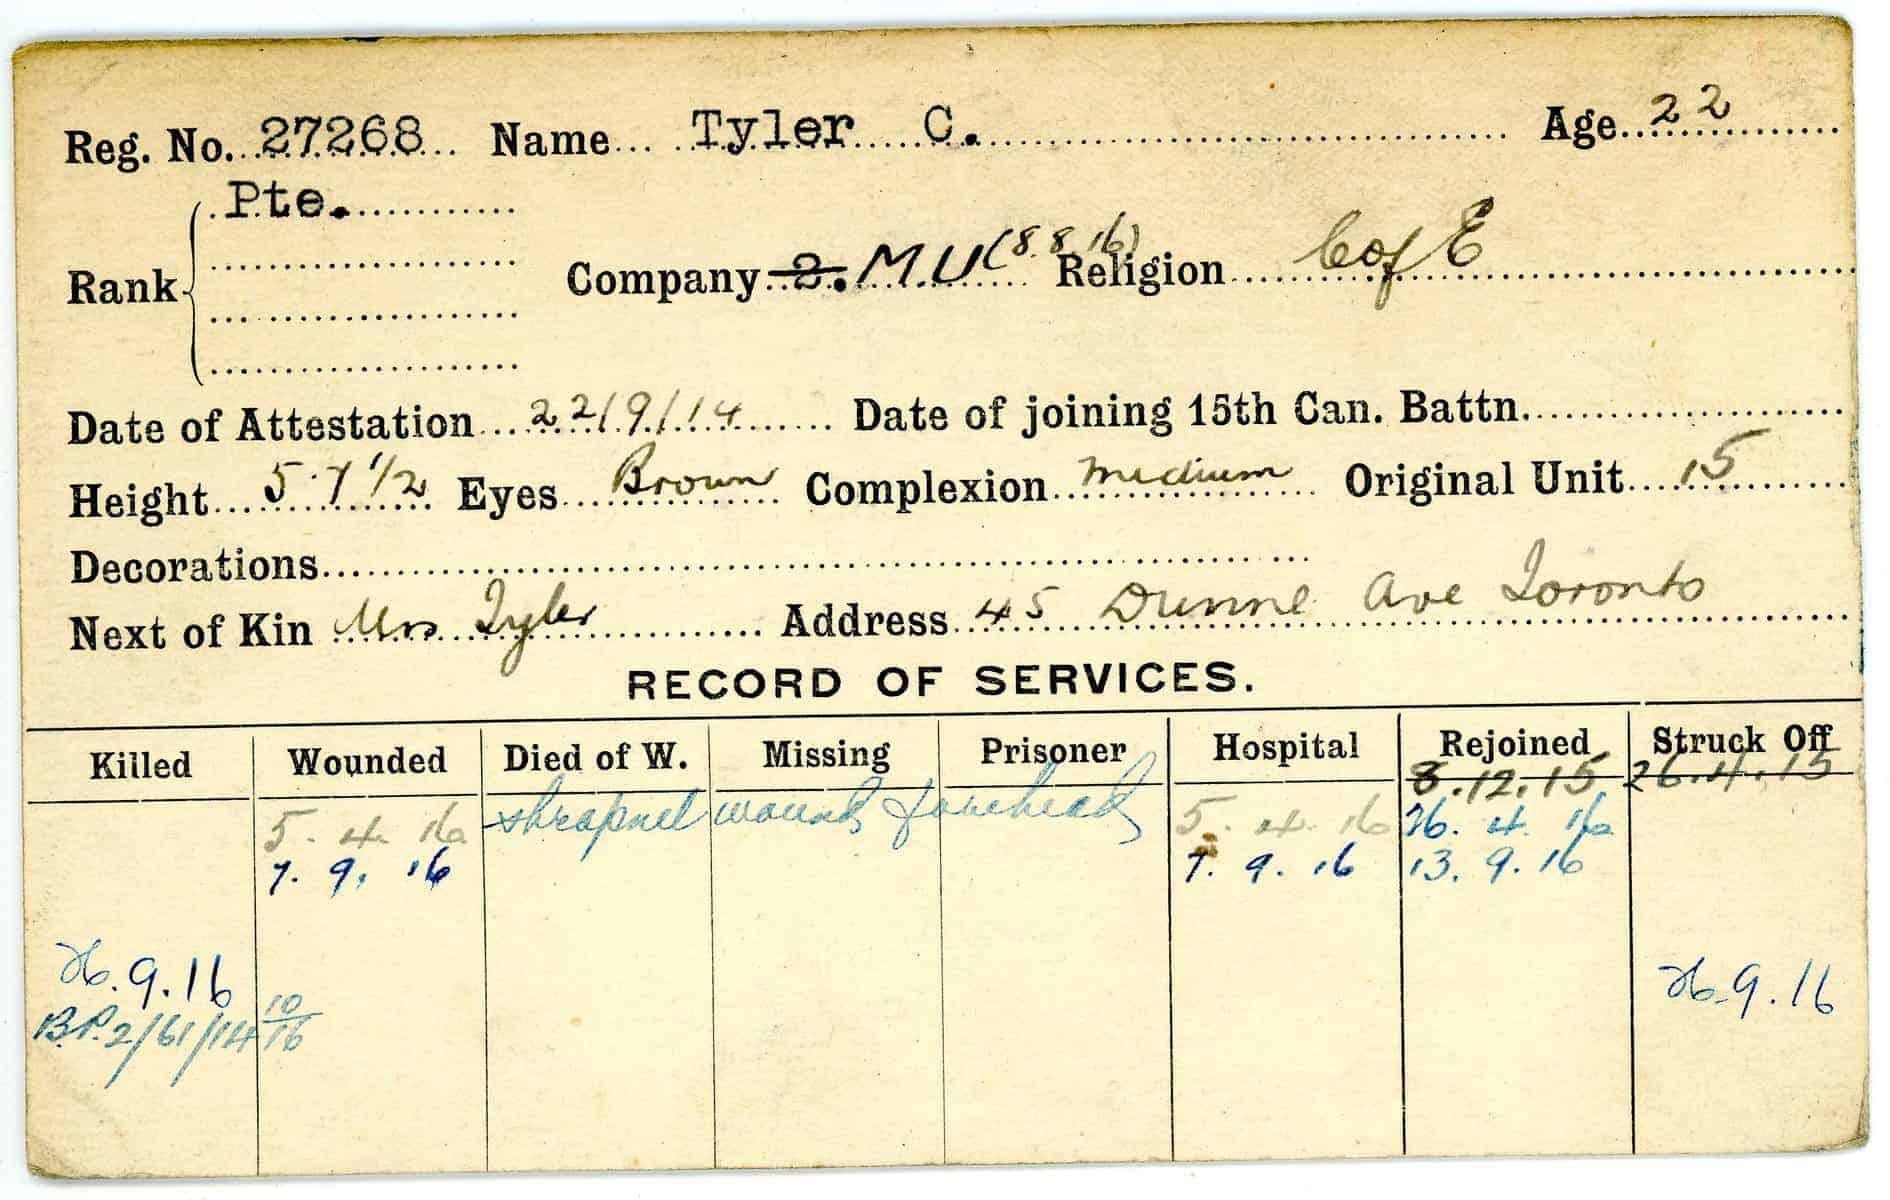 Reg. No. 27268 Name Tyler C. Age 22
Pte.
Rank Company 2. M.U (8.8.16) Religion C of E
Date of Attestation 22/9/14 Date of joining 15th Can. Battn.
Height 5.7 1/2 Eyes Brown Complexion medium Original Unit 15
Decorations
Next of Kin Mrs Tyler Address 45 Dunne Ave Toronto
RECORD OF SERVICES.
Killed Wounded Died of W. Missing Prisoner Hospital Rejoined Struck Off
8.12.15 26.4.15
5.4.16 shrapnel wound forehead 5.4.16 26.4.16
7.9.16 7.9.16 13.9.16
26.9.16 26.9.16
B.P. 2/61/14 10/16